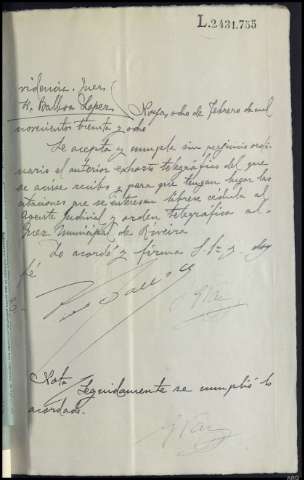 L.2431.755
videncia. Juez
R. Balboa Lopez
Noya, ocho de Febrero de mil
novecientos treinta y ocho
Se acepta y cumpla sin perjuicio
el anterior exhorto telegráfico del que
se acuse recibo y para que tengan lugar las
citaciones que se interesan librese cédula al
Agente Judicial y orden telegráfica al
Juez Municipal de Riveira.
Lo acordó y firma S.Sª y doy
fé
Nota
Seguidamente se cumplió lo
acordado.